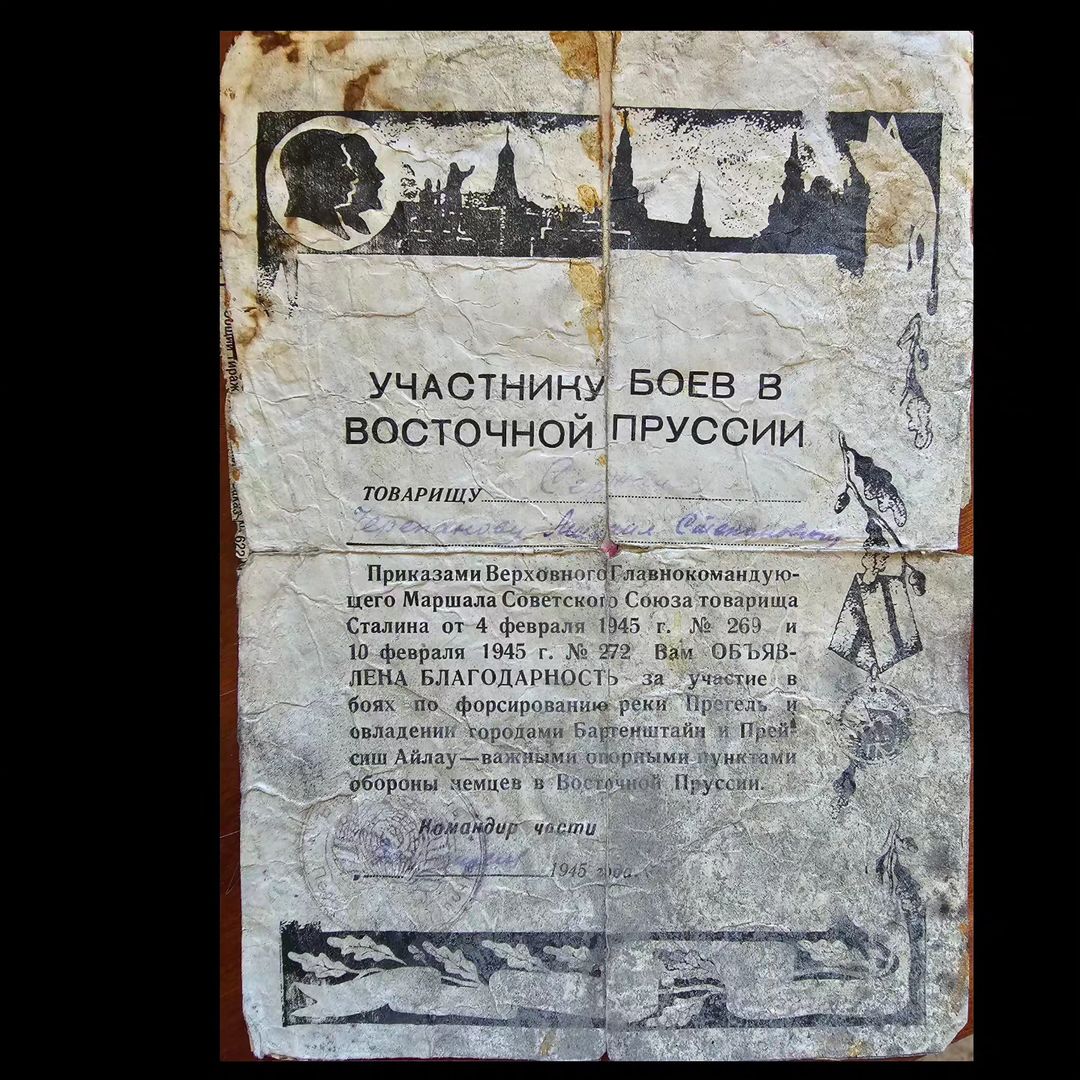 УЧАСТНИКУ БОЕВ В
ВОСТОЧНОЙ ПРУССИИ
ТОВАРИЩУ
Приказами Верховного Главнокомандую-
щего Маршала Советского Союза товарища
Сталина от 4 февраля 1945 г. № 269 и
10 февраля 1945 г. № 272 Вам ОБЪЯВ-
ЛЕНА БЛАГОДАРНОСТЬ за участие в
боях по форсированию реки Прегель и
овладении городами Бартенштайн и Прей-
сиш Айлау—важными опорными пунктами
обороны немцев в Восточной Пруссии.
Командир части
1945 года.
Общий тираж